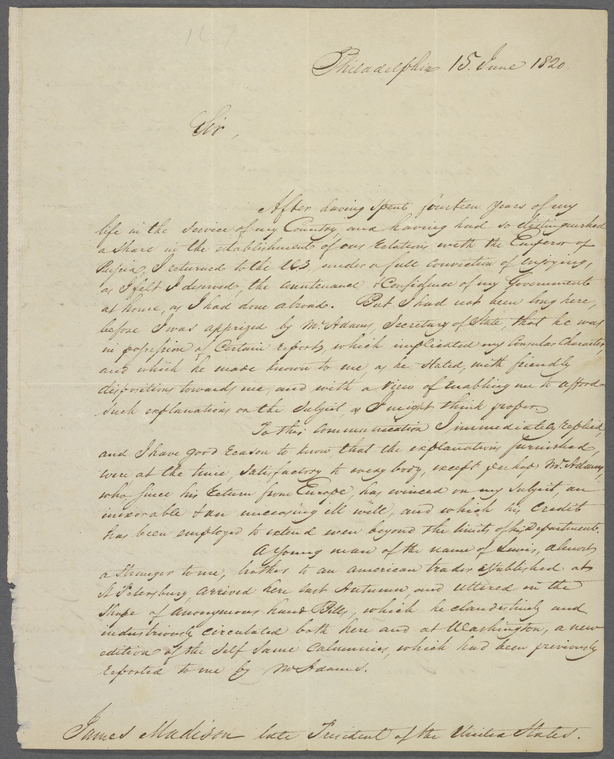 Philadelphia 15. June 1820.
Sir,
After having spent fourteen years of my
life in the service of my Country, and having had so distinguished
a share in the establishment of our relations with the Emperor of
Russia, I returned to the US under a full conviction of enjoying,
as I felt I deserved, the countenance & Confidence of my Government
at home, as I had done abroad. But I had not been long here,
before I was apprized by Mr. Adams, Secretary of State, that he was
in possession of Certain reports, which implicated my Consular Character,
and which he made known to me, as he stated, with friendly
dispositions towards me, and with a view of enabling me to afford
such explanations on the subject, as I might think proper.
To this Communication I immediately replied,
and I have good reason to know, that the explanations furnished,
were at the time, satisfactory to every body, except perhaps Mr. Adams,
who since his return from Europe has evinced on my subject, an
inexorable & an unceasing ill will, and which his credit
has been employed to extend even beyond the limits of his Department.
A young man of the name of Lewis, almost
a stranger to me, brother to an american trader established at
St Petersburg arrived here last Autumn, and uttered in the
Shape of anonymous hand Bills, which he clandestinely and
industriously circulated both here and at Washington, a new
edition of the self same calumnies, which had been previously
reported to me by Mr Adams.
James Madison late President of the United States.